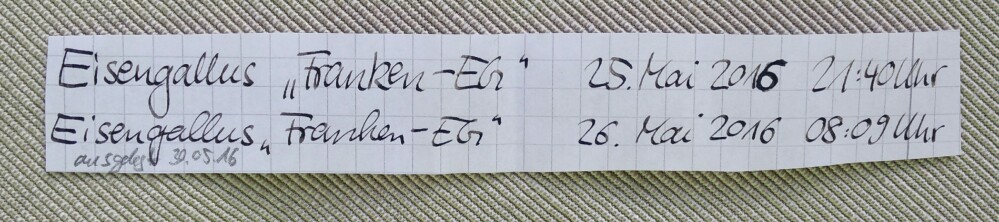 Eisengallus „Franken-EG“ 25. Mai 2016 21:40 Uhr
Eisengallus „Franken-EG“ 26. Mai 2016 08:09 Uhr
ausgelegt 30.05.16